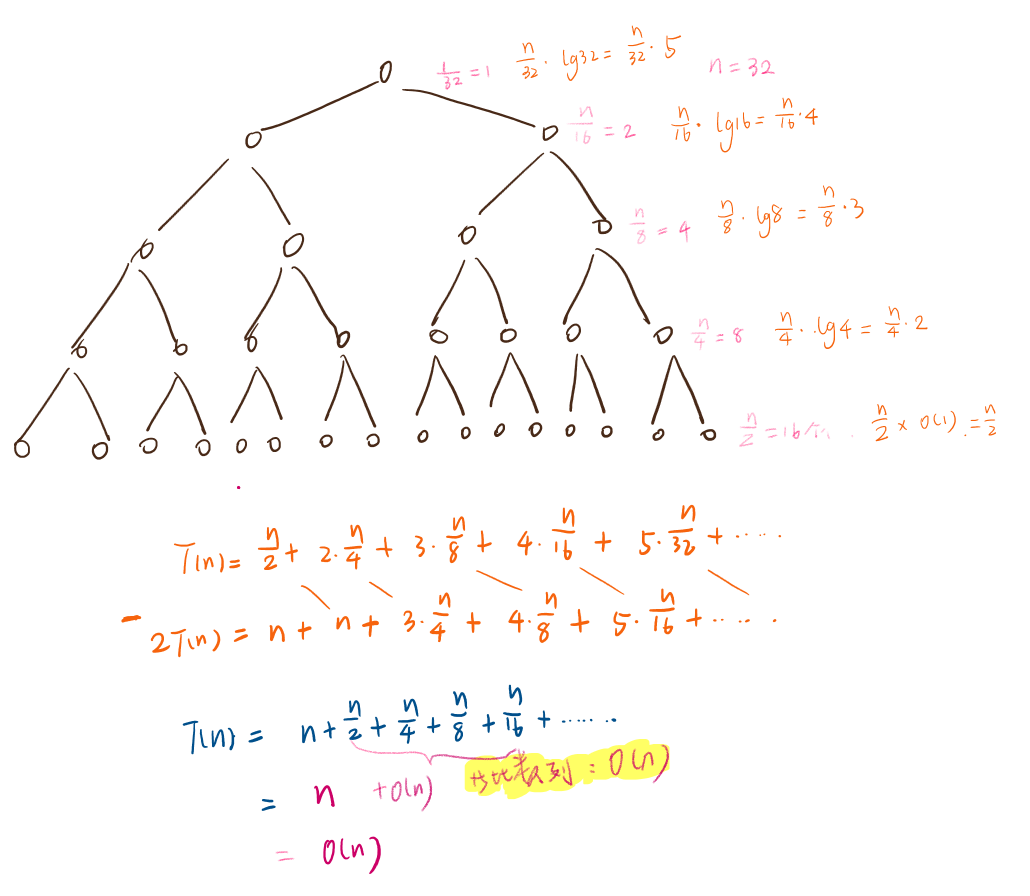 1/32 = 1 n/32 · lg32 = n/32 · 5 n = 32
n/16 = 2 n/16 · lg16 = n/16 · 4
n/8 = 4 n/8 · lg8 = n/8 · 3
n/4 = 8 n/4 · lg4 = n/4 · 2
n/2 = 16个 n/2 × O(1) = n/2
T(n) = n/2 + 2 · n/4 + 3 · n/8 + 4 · n/16 + 5 · n/32 + ······
- 2T(n) = n + n + 3 · n/4 + 4 · n/8 + 5 · n/16 + ······
T(n) = n + n/2 + n/4 + n/8 + n/16 + ······
= n + O(n) 等比数列 : O(n)
= O(n)